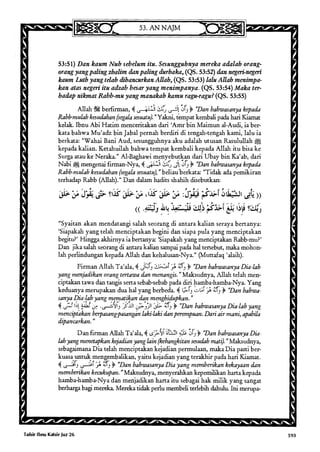 53. AN NAJM
53:51) Dan kaum Nuh sebelum itu. Sesungguhnya mereka adalah orang-
orang yang paling zhalim dan paling durhaka, (QS. 53:52) dan negeri-negeri
kaum Luth yang telah dihancurkan Allah, (QS. 53:53) lalu Allah menimpa-
kan atas negeri itu adzab besar yang menimpanya. (QS. 53:54) Maka ter-
hadap nikmat Rabb-mu yang manakah kamu ragu-ragu? (QS. 53:55)
Allah ﷻ berfirman, ﴿ وَأَنَّ إِلَى رَبِّكَ الْمُنتَهَى ﴾ "Dan bahwasanya kepada
Rabb-mulah kesudahan (segala sesuatu)." Yakni, tempat kembali pada hari Kiamat
kelak. Ibnu Abi Hatim menceritakan dari 'Amr bin Maimun al-Audi, ia ber-
kata bahwa Mu'adz bin Jabal pernah berdiri di tengah-tengah kami, lalu ia
berkata: "Wahai Bani Aud, sesungguhnya aku adalah utusan Rasulullah ﷺ
kepada kalian. Ketahuilah bahwa tempat kembali kepada Allah itu bisa ke
Surga atau ke Neraka." Al-Baghawi menyebutkan dari Ubay bin Ka'ab, dari
Nabi ﷺ mengenai firman-Nya, ﴿ وَأَنَّ إِلَى رَبِّكَ الْمُنتَهَى ﴾ "Dan bahwasanya kepada
Rabb-mulah kesudahan (segala sesuatu)," beliau berkata: "Tidak ada pemikiran
terhadap Rabb (Allah)." Dan dalam hadits shahih disebutkan:
(( يَأْتِي الشَّيْطَانُ أَحَدَكُمْ فَيَقُوْلُ: مَنْ خَلَقَ كَذَا، مَنْ خَلَقَ كَذَا؟ حَتَّى يَقُوْلَ مَنْ خَلَقَ
رَبَّكَ؟ فَإِذَا بَلَغَ أَحَدُكُمْ ذَلِكَ فَلْيَسْتَعِذْ بِاللهِ وَلْيَنْتَهِ. ))
"Syaitan akan mendatangi salah seorang di antara kalian seraya bertanya:
'Siapakah yang telah menciptakan begini dan siapa pula yang menciptakan
begitu?' Hingga akhirnya ia bertanya: 'Siapakah yang menciptakan Rabb-mu?'
Dan jika salah seorang di antara kalian sampai pada hal tersebut, maka mohon-
lah perlindungan kepada Allah dan kehabisan-Nya." (Muttafaq 'alaih).
Firman Allah Ta'ala, ﴿ وَأَنَّهُ هُوَ أَضْحَكَ وَأَبْكَى ﴾ "Dan bahwasanya Dia-lah
yang menjadikan orang tertawa dan menangis." Maksudnya, Allah telah men-
ciptakan tawa dan tangis serta sebab-sebab pada diri hamba-hamba-Nya. Yang
keduanya merupakan dua hal yang berbeda. ﴿ وَأَنَّهُ هُوَ أَمَاتَ وَأَحْيَا ﴾ "Dan bahwa-
sanya Dia-lah yang mematikan dan menghidupkan."
﴿ وَأَنَّهُ خَلَقَ الزَّوْجَيْنِ الذَّكَرَ وَالْأُنثَى مِن نُّطْفَةٍ إِذَا تُمْنَى ﴾ "Dan bahwasanya Dia-lah yang
menciptakan berpasang-pasangan laki-laki dan perempuan. Dari air mani, apabila
dipancarkan."
Dan firman Allah Ta'ala, ﴿ وَأَنَّ عَلَيْهِ النَّشْأَةَ الْأُخْرَى ﴾ "Dan bahwasanya Dia-
lah yang menetapkan kejadian yang lain (kebangkitan sesudah mati)." Maksudnya,
sebagaimana Dia telah menciptakan kejadian permulaan, maka Dia pasti ber-
kuasa untuk mengembalikan, yaitu kejadian yang terakhir pada hari Kiamat.
﴿ وَأَنَّهُ هُوَ أَغْنَى وَأَقْنَى ﴾ "Dan bahwasanya Dia yang memberikan kekayaan dan
memberikan kecukupan." Maksudnya, menyerahkan kepemilikan harta kepada
hamba-hamba-Nya dan menjadikan harta itu sebagai hak milik yang sangat
berharga bagi mereka. Mereka tidak perlu membeli terlebih dahulu. Ini merupa-
Tafsir Ibnu Katsir Juz 26
593